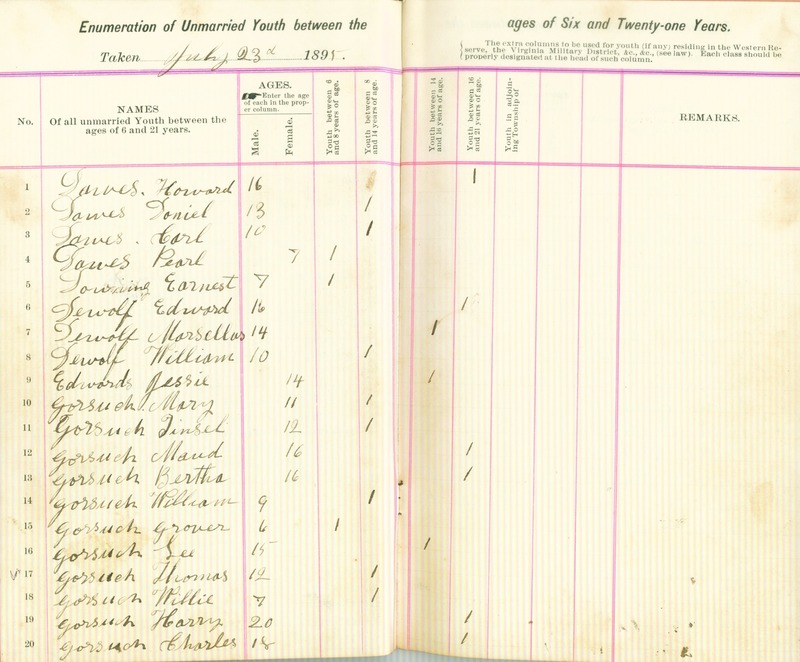 Enumeration of Unmarried Youth between the ages of Six and Twenty-one Years.
Taken July 23d 1895.
The extra columns to be used for youth (if any) residing in the Western Re-
serve, the Virginia Military District, &c., &c., (see law). Each class should be
properly designated at the head of such column.
No.
NAMES
Of all unmarried Youth between the
ages of 6 and 21 years.
AGES.
Enter the age
of each in the prop-
er column.
Male.
Female.
Youth between 6
and 8 years of age.
Youth between 8
and 14 years of age.
Youth between 14
and 16 years of age.
Youth between 16
and 21 years of age.
Youth in adjoin-
ing Township of
REMARKS.
1 Dawes. Howard 16 1
2 Dawes Daniel 13 1
3 Dawes. Carl 10 1
4 Dawes Pearl 7 1
5 Earnest 7 1
6 Dewolf Edward 16 1
7 Dewolf Marsellas 14 1
8 Dewolf William 10 1
9 Edwards Jessie 14 1
10 Gorsuch Mary 11 1
11 Gorsuch Tinsel 12 1
12 Gorsuch Maud 16 1
13 Gorsuch Bertha 16 1
14 Gorsuch William 9 1
15 Gorsuch Grover 6 1
16 Gorsuch Lee 15 1
17 Gorsuch Thomas 12 1
18 Gorsuch Willie 7 1
19 Gorsuch Harry 20 1
20 Gorsuch Charles 18 1